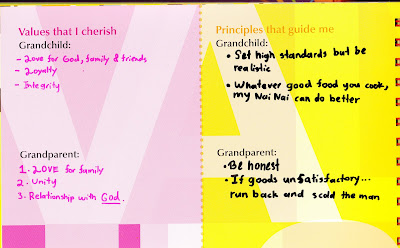 Values that I cherish
Grandchild:
- Love for God, family & friends
- Loyalty
- Integrity
Grandparent:
1. LOVE for family
2. Unity
3. Relationship with God.
Principles that guide me
Grandchild:
• Set high standards but be
realistic
• Whatever good food you cook,
my Nai Nai can do better
Grandparent:
• Be honest
• If goods unsatisfactory...
run back and scold the man